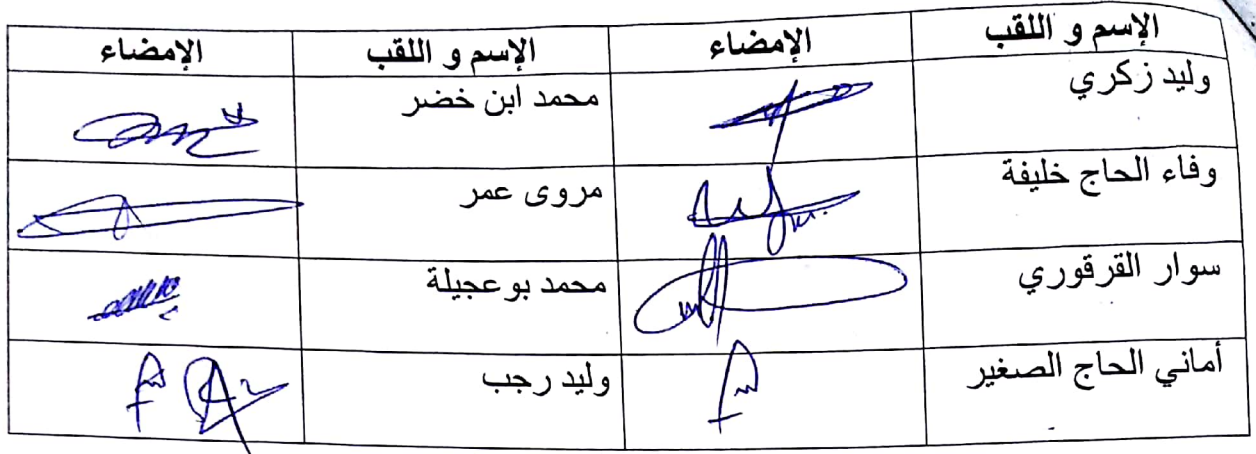 الإسم و اللقب الإمضاء الإسم و اللقب الإمضاء
وليد زكري محمد ابن خضر
وفاء الحاج خليفة مروى عمر
سوار القرقوري محمد بوعجيلة
أماني الحاج الصغير وليد رجب